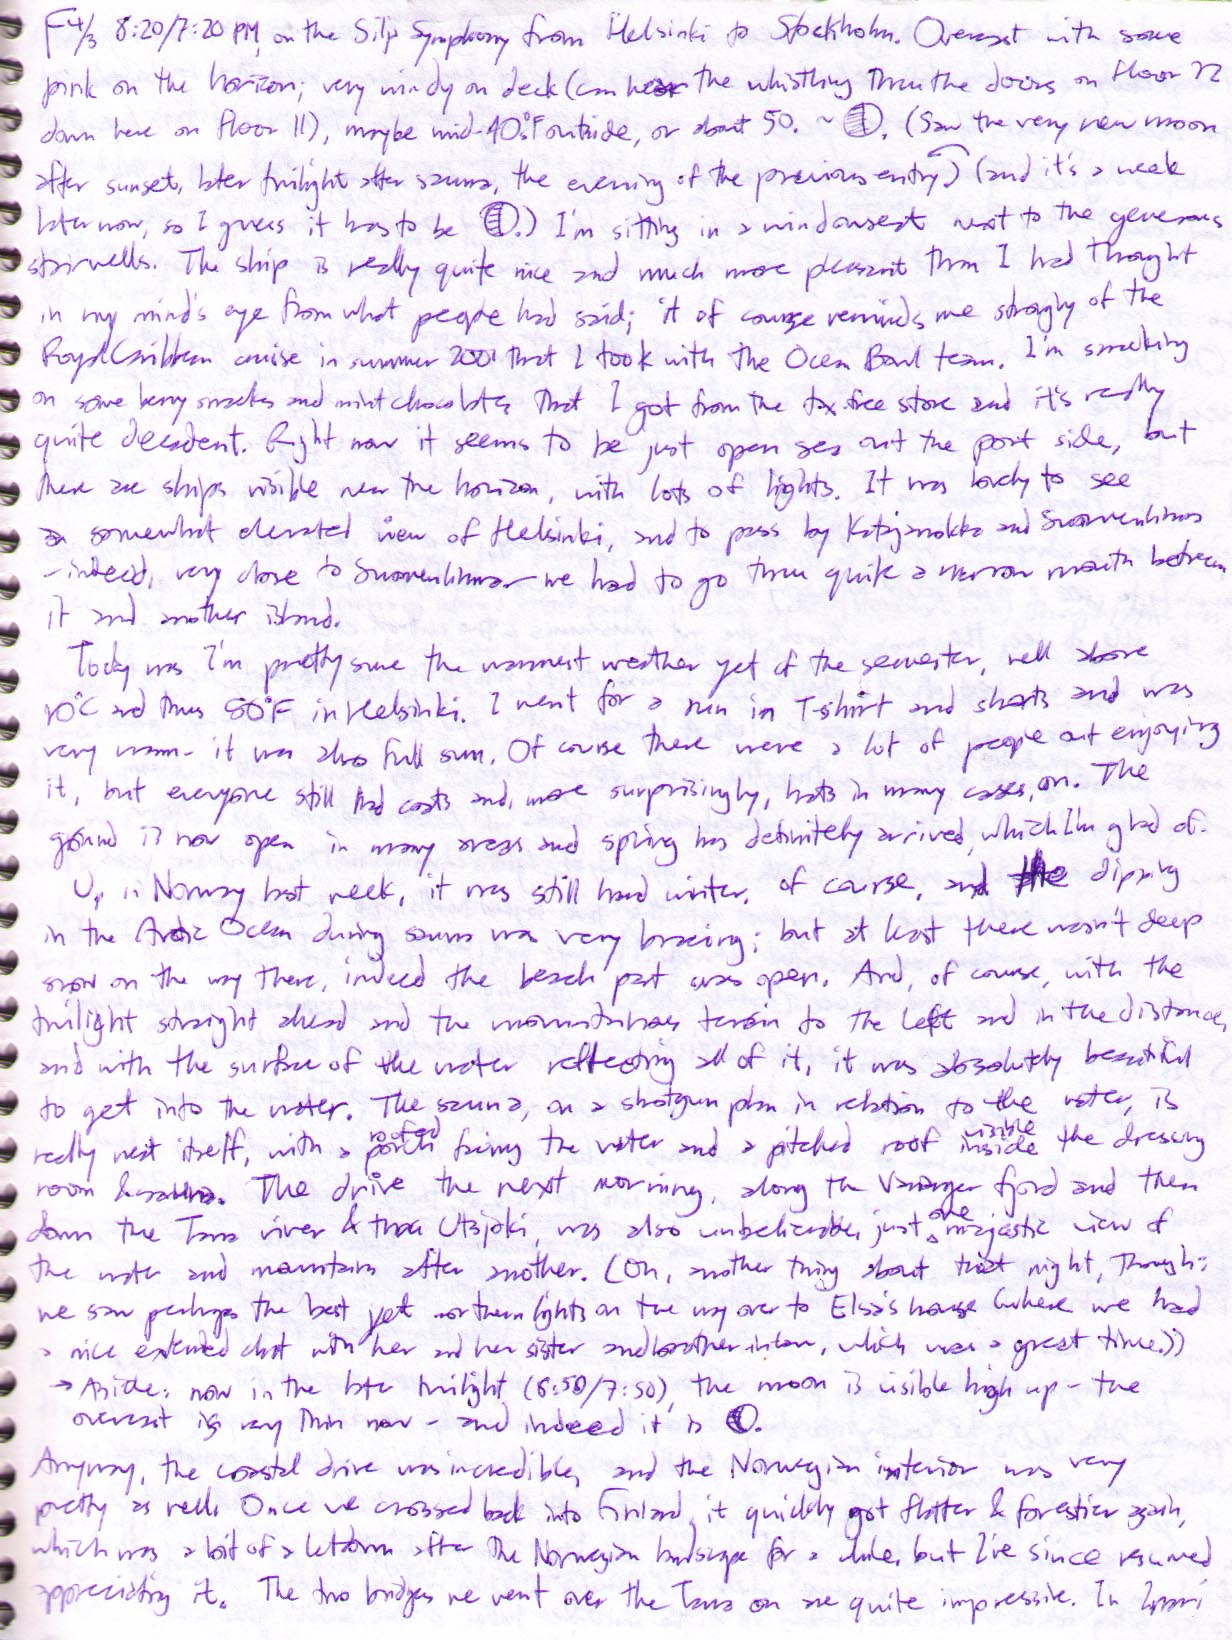 F 4/3 8:20/7:20 PM, on the Silja Symphony from Helsinki to Stockholm. Overcast with some
pink on the horizon; very windy on deck (can hear the whistling thru the doors on floor 12
down here on floor 11), maybe mid-40s°F outside, or about 50. ~ ◐. (Saw the very new moon
after sunset, later twilight after sauna, the evening of the previous entry) (and it's a week
later now, so I guess it has to be ◐.) I'm sitting in a windowseat next to the generous
stairwells. The ship is really quite nice and much more pleasant than I had thought
in my mind's eye from what people had said; it of course reminds me strongly of the
Royal Caribbean cruise in summer 2001 that I took with the Ocean Bowl team. I'm snacking
on some berry snacks and mint chocolates that I got from the tax free store and it's really
quite decadent. Right now it seems to be just open sea out the port side, but
there are ships visible near the horizon, with lots of lights. It was lovely to see
a somewhat elevated view of Helsinki, and to pass by Katajanokka and Suomenlinna
- indeed, very close to Suomenlinna - we had to go thru quite a narrow mouth between
it and another island.
Today was I'm pretty sure the warmest weather yet of the semester, well above
10°C and thus 50°F in Helsinki. I went for a run in T-shirt and shorts and was
very warm - it was also full sun. Of course there were a lot of people out enjoying
it, but everyone still had coats and, more surprisingly, hats in many cases, on. The
ground is now open in many areas and spring has definitely arrived, which I'm glad of.
Up in Norway last week, it was still hard winter, of course, and dipping
in the Arctic Ocean during sauna was very bracing; but at least there wasn't deep
snow on the way there, indeed the beach part was open. And, of course, with the
twilight straight ahead and the mountainous terrain to the left and in the distance,
and with the surface of the water reflecting all of it, it was absolutely beautiful
to get into the water. The sauna, on a shotgun plan in relation to the water, is
really neat itself, with a roofed porch facing the water and a pitched roof visible inside the dressing
room & sauna. The drive the next morning, along the Varanger fjord and then
down the Tana river & thru Utsjoki, was also unbelievable, just one majestic view of
the water and mountains after another. (Oh, another thing about that night, though:
we saw perhaps the best yet northern lights on the way over to Elsa's house (where we had
a nice extended chat with her and her sister and brother in law, which was a great time.))
→ Aside: now in the late twilight (8:50/7:50), the moon is visible high up - the
overcast is very thin now - and indeed it is ◐.
Anyway, the coastal drive was incredible, and the Norwegian interior was very
pretty as well. Once we crossed back into Finland, it quickly got flatter & forestier again,
which was a bit of a letdown after the Norwegian landscape for a while, but I've since resumed
appreciating it. The two bridges we went over the Tana on are quite impressive. In Inari